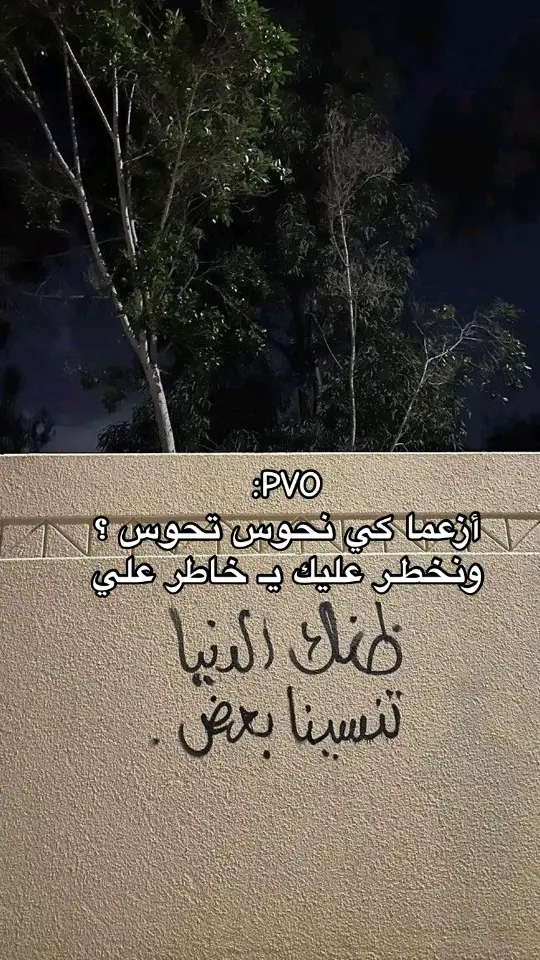 PVO:
أزعما كي نحوس تحوس ؟
ونخطر عليك يـ خاطر علي
ظنك الدنيا
تنسينا بعض .